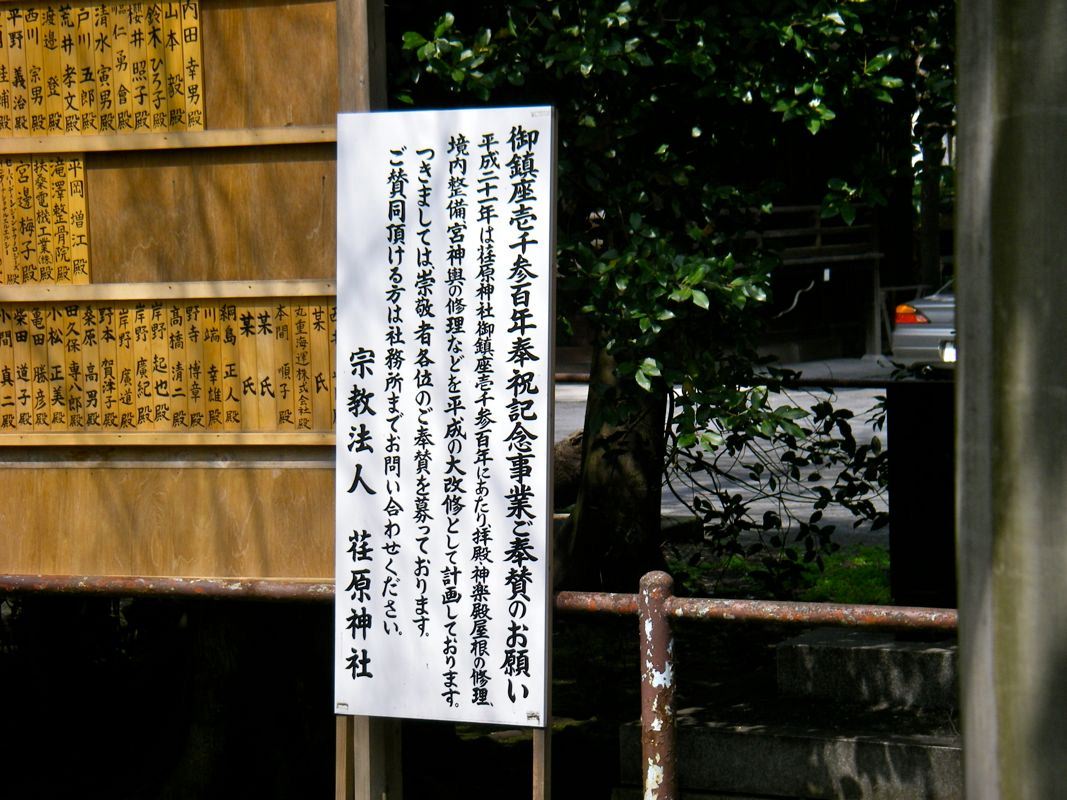 御鎮座壱千参百年奉祝記念事業ご奉賛のお願い
平成二十一年は荏原神社御鎮座壱千参百年にあたり、拝殿、神楽殿屋根の修理、
境内整備、宮神輿の修理などを平成の大改修として計画しております。
つきましては崇敬者各位のご奉賛を募っております。
ご賛同頂ける方は社務所までお問い合わせください。
宗教法人 荏原神社
内田 幸男殿
山本 毅殿
鈴木 ひろ子殿
櫻井 照子殿
仁勇會殿
清水 寅男殿
戸川 五郎殿
荒井 孝文殿
渡邊 登殿
西川 宗男殿
平野 義治殿
平岡 増江殿
滝澤整骨院殿
扶桑電機工業㈱殿
宮邊 梅子殿
某 氏
丸重海運株式会社殿
本間 順子殿
某 氏
某 氏
綱島 正人殿
川端 幸雄殿
野寺 博章殿
高橋 清二殿
岸野 起也殿
岸野 廣紀殿
岸野 廣道殿
野本 賀津子殿
桑原 高男殿
田久保 専八郎殿
小松 正美殿
亀田 勝彦殿
柴田 道子殿
小間 真二殿